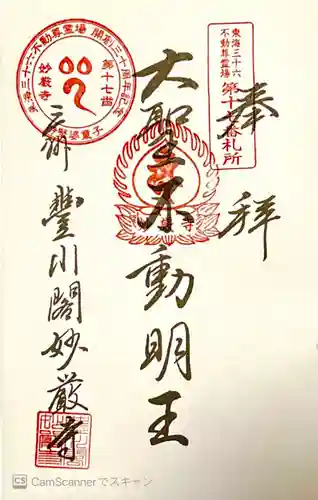 東海三十六
不動尊霊場
第十七番札所
奉拝
大聖不動明王
東海三十六不動尊霊場 開創三十周年記念
第十七番
妙厳寺
豊川閣妙厳寺
CS CamScannerでスキャン